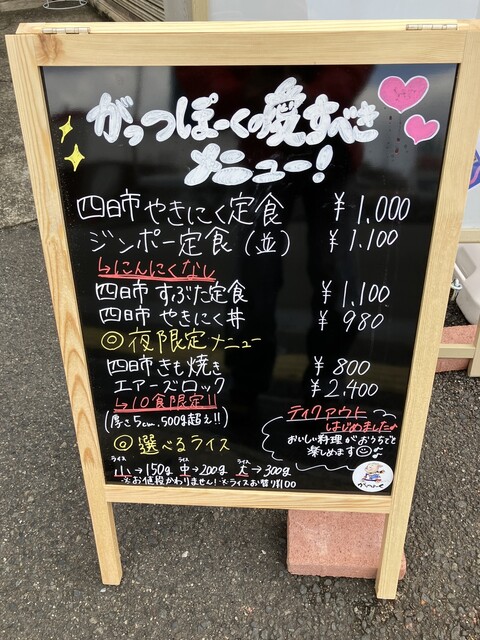 がっつぽーくの愛すべき
メニュー!
四日市 やきにく定食 ¥1,000
ジンポー定食(並) ¥1,100
↳にんにくなし
四日市 すぶた定食 ¥1,100
四日市 やきにく丼 ¥980
◎夜限定メニュー
四日市きも焼き ¥800
エアーズロック ¥2,400
↳10食限定!!
(厚さ5cm、500g超え!!)
テイクアウト
はじめました♪
おいしい料理がおうちでも
楽しめます☺♪
◎選べるライス
ライス ライス ライス
小→150g 中→200g 大→300g
※お値段かわりません! ※ライスお替り100